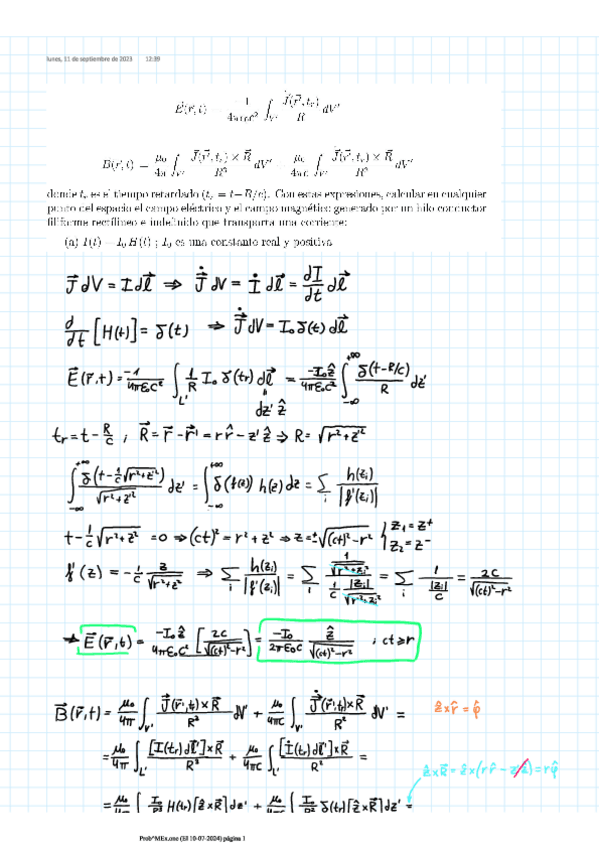 lunes, 11 de septiembre de 2023 12:39
E⃗(r⃗,t) = −1/(4πε₀c²) ∫_V' J̇⃗(r⃗',t_r)/R dV'
B⃗(r⃗,t) = μ₀/4π ∫_V' J⃗(r⃗',t_r) × R⃗ / R³ dV' + μ₀/4πc ∫_V' J̇⃗(r⃗',t_r) × R⃗ / R² dV'
donde t_r es el tiempo retardado (t_r = t−R/c). Con estas expresiones, calcular en cualquier
punto del espacio el campo eléctrico y el campo magnético generado por un hilo conductor
filiforme rectilíneo e indefinido que transporta una corriente:
(a) I(t) = I₀ H(t) ; I₀ es una constante real y positiva.
J⃗ dV = I dl⃗ ⇒ J̇⃗ dV = İ dl⃗ = dI/dt dl⃗
d/dt [H(t)] = δ(t) ⇒ J̇⃗ dV = I₀ δ(t) dl⃗
E⃗(r⃗,t) = −1/(4πε₀c²) ∫_L' 1/R I₀ δ(tr) dl⃗ = −I₀ẑ/(4πε₀c²) ∫_−∞^+∞ δ(t−R/c)/R dz'
dz' ẑ
tr = t − R/c ; R⃗ = r⃗ − r⃗' = r r̂ − z' ẑ ⇒ R = √(r²+z'²)
∫_−∞^+∞ δ(t−1/c √(r²+z'²))/√(r²+z'²) dz' = ∫_−∞^+∞ δ(f(z)) h(z) dz = Σ_i h(zi)/|f'(zi)|
t − 1/c √(r²+z²) = 0 ⇒ (ct)² = r² + z² ⇒ z = ±√((ct)²−r²) { z₁ = z⁺
z₂ = z⁻
f'(z) = −1/c z/√(r²+z²) ⇒ Σ_i h(zi)/|f'(zi)| = Σ_i (1/√(r²+zi²))/(1/c |zi|/√(r²+zi²)) = Σ_i 1/(|zi|/c) = 2c/√((ct)²−r²)
→ E⃗(r⃗,t) = −I₀ẑ/(4πε₀c²) [2c/√((ct)²−r²)] = −I₀/(2πε₀c) ẑ/√((ct)²−r²) ; ct ≥ r
B⃗(r⃗,t) = μ₀/4π ∫_V' J⃗(r⃗',t)×R⃗/R³ dV' + μ₀/4πc ∫_V' J̇⃗(r⃗',t)×R⃗/R² dV' = ẑ×r̂ = φ̂
= μ₀/4π ∫_L' [I(tr)dl⃗']×R⃗/R³ + μ₀/4πc ∫_L' [İ(tr)dl⃗']×R⃗/R² =
ẑ×R⃗ = ẑ×(r r̂ − z'ẑ) = r φ̂
= μ₀/4π ∫ I₀/R³ H(tr)[ẑ×R⃗]dz' + μ₀/4πc ∫ I₀/R² δ(tr)[ẑ×R⃗]dz' =
Prob^MEx.one (El 10-07-2024) página 1